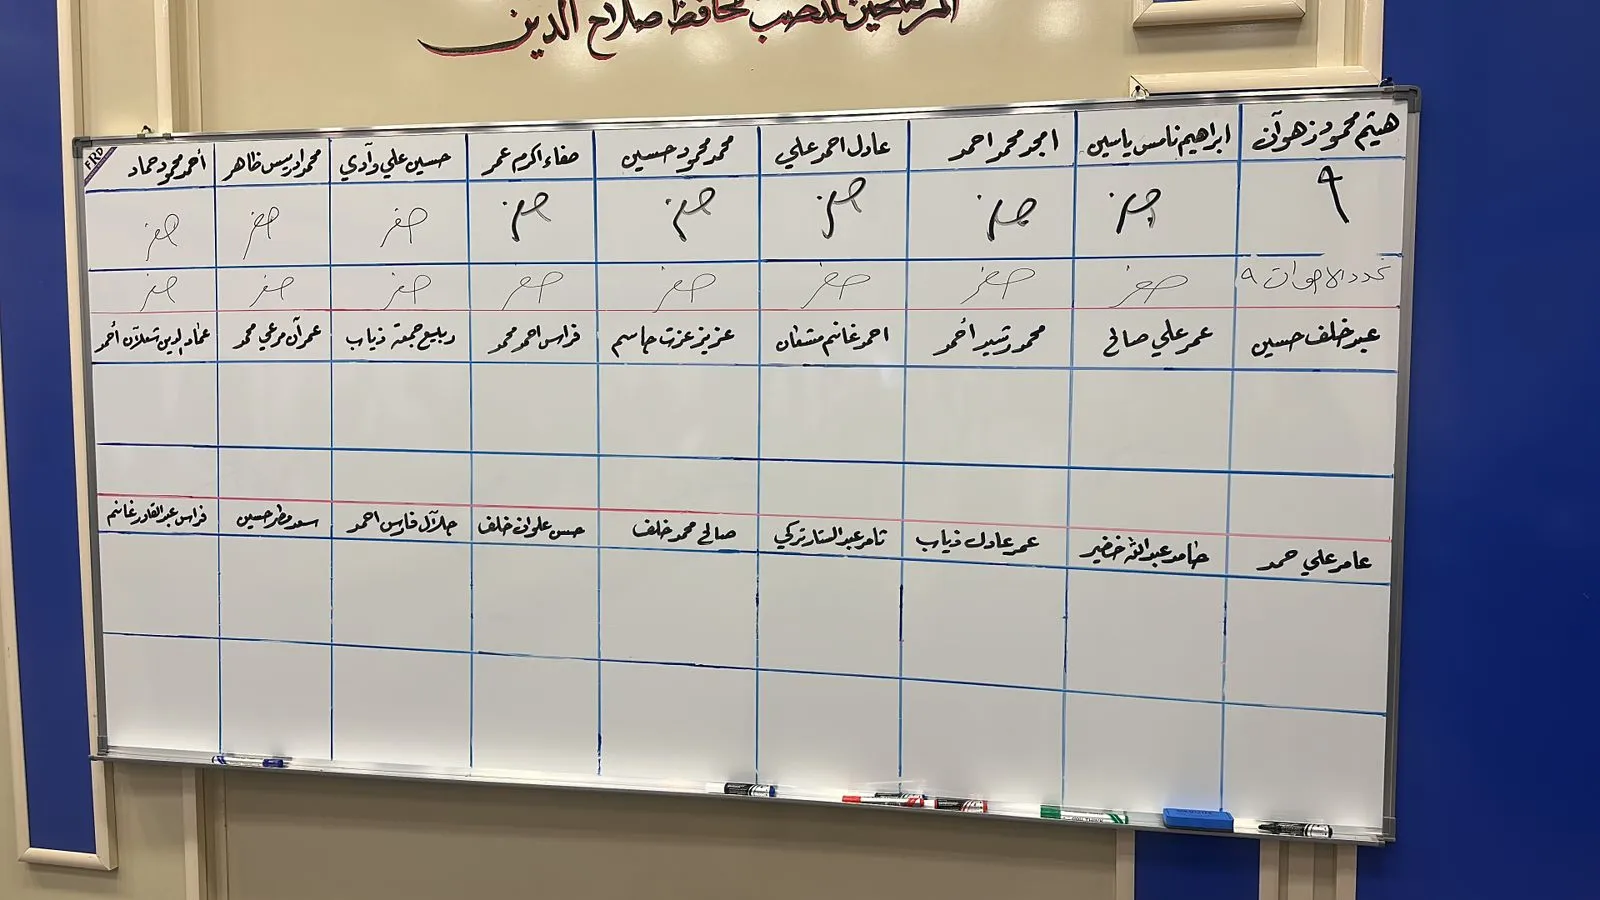 المرشحين لمنصب محافظ صلاح الدين
هيثم محمود زهوان ابراهيم نامس ياسين امجد محمد احمد عادل احمد علي محمد محمود حسين صفاء اكرم عمر حسين علي وآدي محمد ادريس ظاهر أحمد محمود حماد
٩ صفر صفر صفر صفر صفر صفر صفر صفر
عدد الاصوات ٩ صفر صفر صفر صفر صفر صفر صفر صفر
عبد خلف حسين عمر علي صالح محمد رشيد أحمد احمد غانم مشعان عزيز عزت جاسم فراس احمد محمد ربيع جمعة ذياب عمرآن مرعي محمد عماد الدين شعلان أحمد
عامر علي حمد حامد عبدالله خضير عمر عادل ذياب ثامر عبد الستار تركي صالح محمد خلف حسن علوان خلف جلآل فارس احمد سعد مطر حسين فراس عبد القادر غانم
FRD